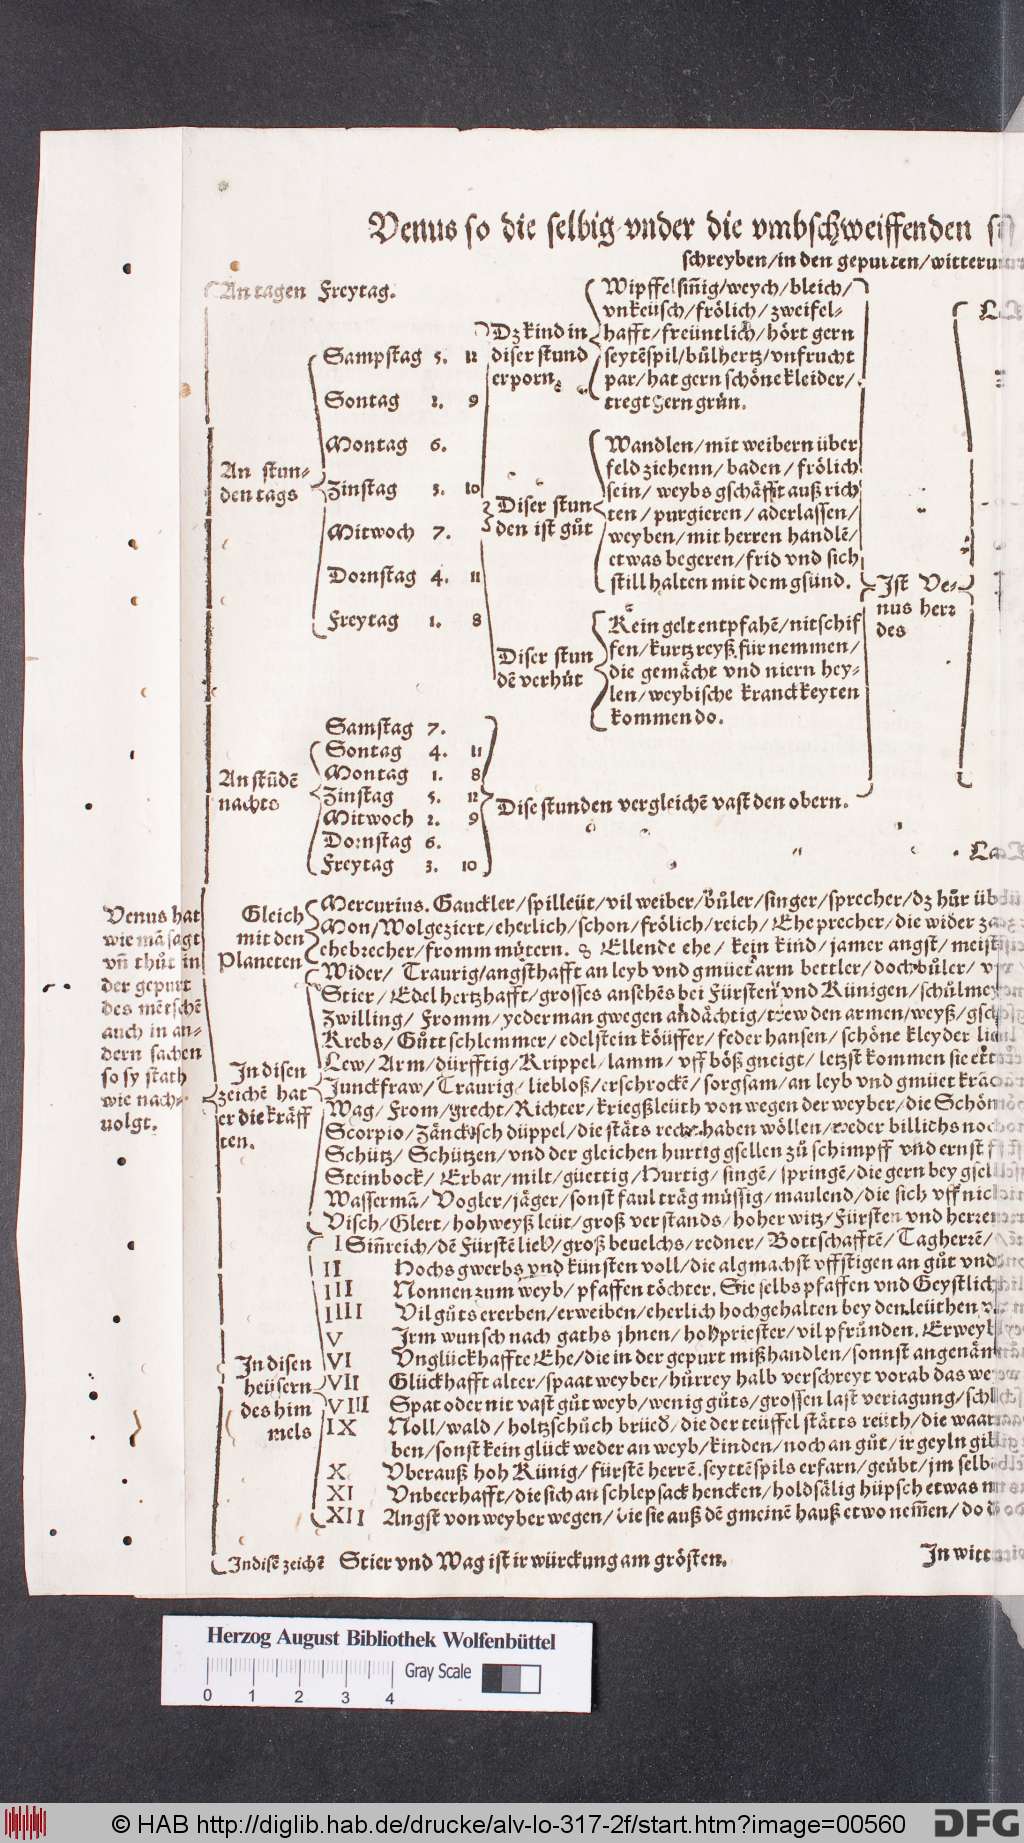 Venus so die selbig vnder die vmbschweiffenden
schreyben/in den gepurten/
An tagen Freytag.
An stun-
den tags
Sampstag 5. 12
Sontag 2. 9
Montag 6.
Zinstag 3. 10
Mitwoch 7.
Dornstag 4. 11
Freytag 1. 8
Dz kind in
diser stund
erporn
Wipffelsiñig/weych/bleich/
vnkeüsch/frölich/zweifel-
hafft/freüntlich/hört gern
seytẽspil/bůlhertz/vnfrucht
par/hat gern schöne kleider/
tregt gern grün.
Diser stun
den ist gůt
Wandlen/mit weibern über
feld ziehenn/baden/frölich
sein/weybs gschäfft auß rich
ten/purgieren/aderlassen/
weyben/mit herren handlẽ/
etwas begeren/frid vnd sich
still halten mit dem gsünd.
Diser stun
dẽ verhüt
Kein gelt entpfahẽ/nit schif
fen/kurtz reyß für nemmen/
die gemächt vnd niern hey-
len/weybische kranckkeyten
kommen do.
Ist Ve-
nus herr
des
An stũdẽ
nachts
Samstag 7.
Sontag 4. 11
Montag 1. 8
Zinstag 5. 12
Mitwoch 2. 9
Dornstag 6.
Freytag 3. 10
Dise stunden vergleichẽ vast den obern.
Venus hat
wie mã sagt
vñ thůt in
der gepurt
des mẽtschẽ
auch in an-
dern sachen
so sy stath
wie nach-
uolgt.
Gleich
mit den
Planeten
Mercurius. Gauckler/spilleüt/vil weiber/bůler/singer/sprecher/dz hůr
Mon/Wolgeziert/eherlich/schon/frölich/reich/Eheprecher/die wider
ehebrecher/fromm můtern. & Ellende ehe/kein kind/jamer angst/
In disen
zeichẽ hat
er die kräff
ten.
Wider/Traurig/angsthafft an leyb vnd gmüet arm bettler/doch bůler/
Stier/Edel hertzhafft/grosses ansehẽs bei Fürsten vnd Künigen/
Zwilling/Fromm/yederman gwegen andächtig/trew den armen/weyß/
Krebs/Gůtt schlemmer/edelstein köüffer/feder hansen/schöne kleyder
Lew/Arm/dürfftig/Krippel/lamm/vff böß gneigt/letzst kommen sie
Junckfraw/Traurig/liebloß/erschrockẽ/sorgsam/an leyb vnd gmüet
Wag/From/grecht/Richter/kriegßleüth von wegen der weyber/die
Scorpio/Zänckisch düppel/die stäts recht haben wöllen/weder billichs
Schütz/Schützen/vnd der gleichen hurtig gsellen zů schimpff vnd ernst
Steinbock/Erbar/milt/güettig/Hurtig/singẽ/springẽ/die gern bey
Wassermã/Vogler/jäger/sonst faul träg müssig/maulend/die sich vff
Visch/Glert/hohweyß leüt/groß verstands/hoher witz/Fürsten vnd
In disen
heüsern
des him
mels
I Siñreich/dẽ Fürstẽ lieb/groß beuelchs/redner/Bottschafftẽ/Tagherrẽ/
II Hochs gwerbs vnd künsten voll/die algmachst vffstigen an gůt vnd
III Nonnen zum weyb/pfaffen töchter. Sie selbs pfaffen vnd
IIII Vil gůts ererben/erweiben/eherlich hochgehalten bey den leüthen
V Irm wunsch nach gaths jhnen/hohpriester/vil pfrůnden.
VI Vnglückhaffte Ehe/die in der gepurt mißhandlen/sonnst
VII Glückhafft alter/spaat weyber/hůrrey halb verschreyt vorab das
VIII Spat oder nit vast gůt weyb/wenig gůts/grossen last veriagung/
IX Noll/wald/holtzschůch brüed/die der teüffel stätts reüth/die
ben/sonst kein glück weder an weyb/kinden/noch an gůt/ir geyln
X Vberauß hoh Künig/fürstẽ herrẽ. seyttẽspils erfarn/geübt/jm
XI Vnbeerhafft/die sich an schlepsack hencken/holdsälig hüpsch etwas
XII Angst von weyber wegen/die sie auß dẽ gmeinẽ hauß etwo neṁen/do
In disẽ zeichẽ Stier vnd Wag ist ir würckung am grösten.
Herzog August Bibliothek Wolfenbüttel
Gray Scale
0 1 2 3 4
© HAB http://diglib.hab.de/drucke/alv-lo-317-2f/start.htm?image=00560
DFG